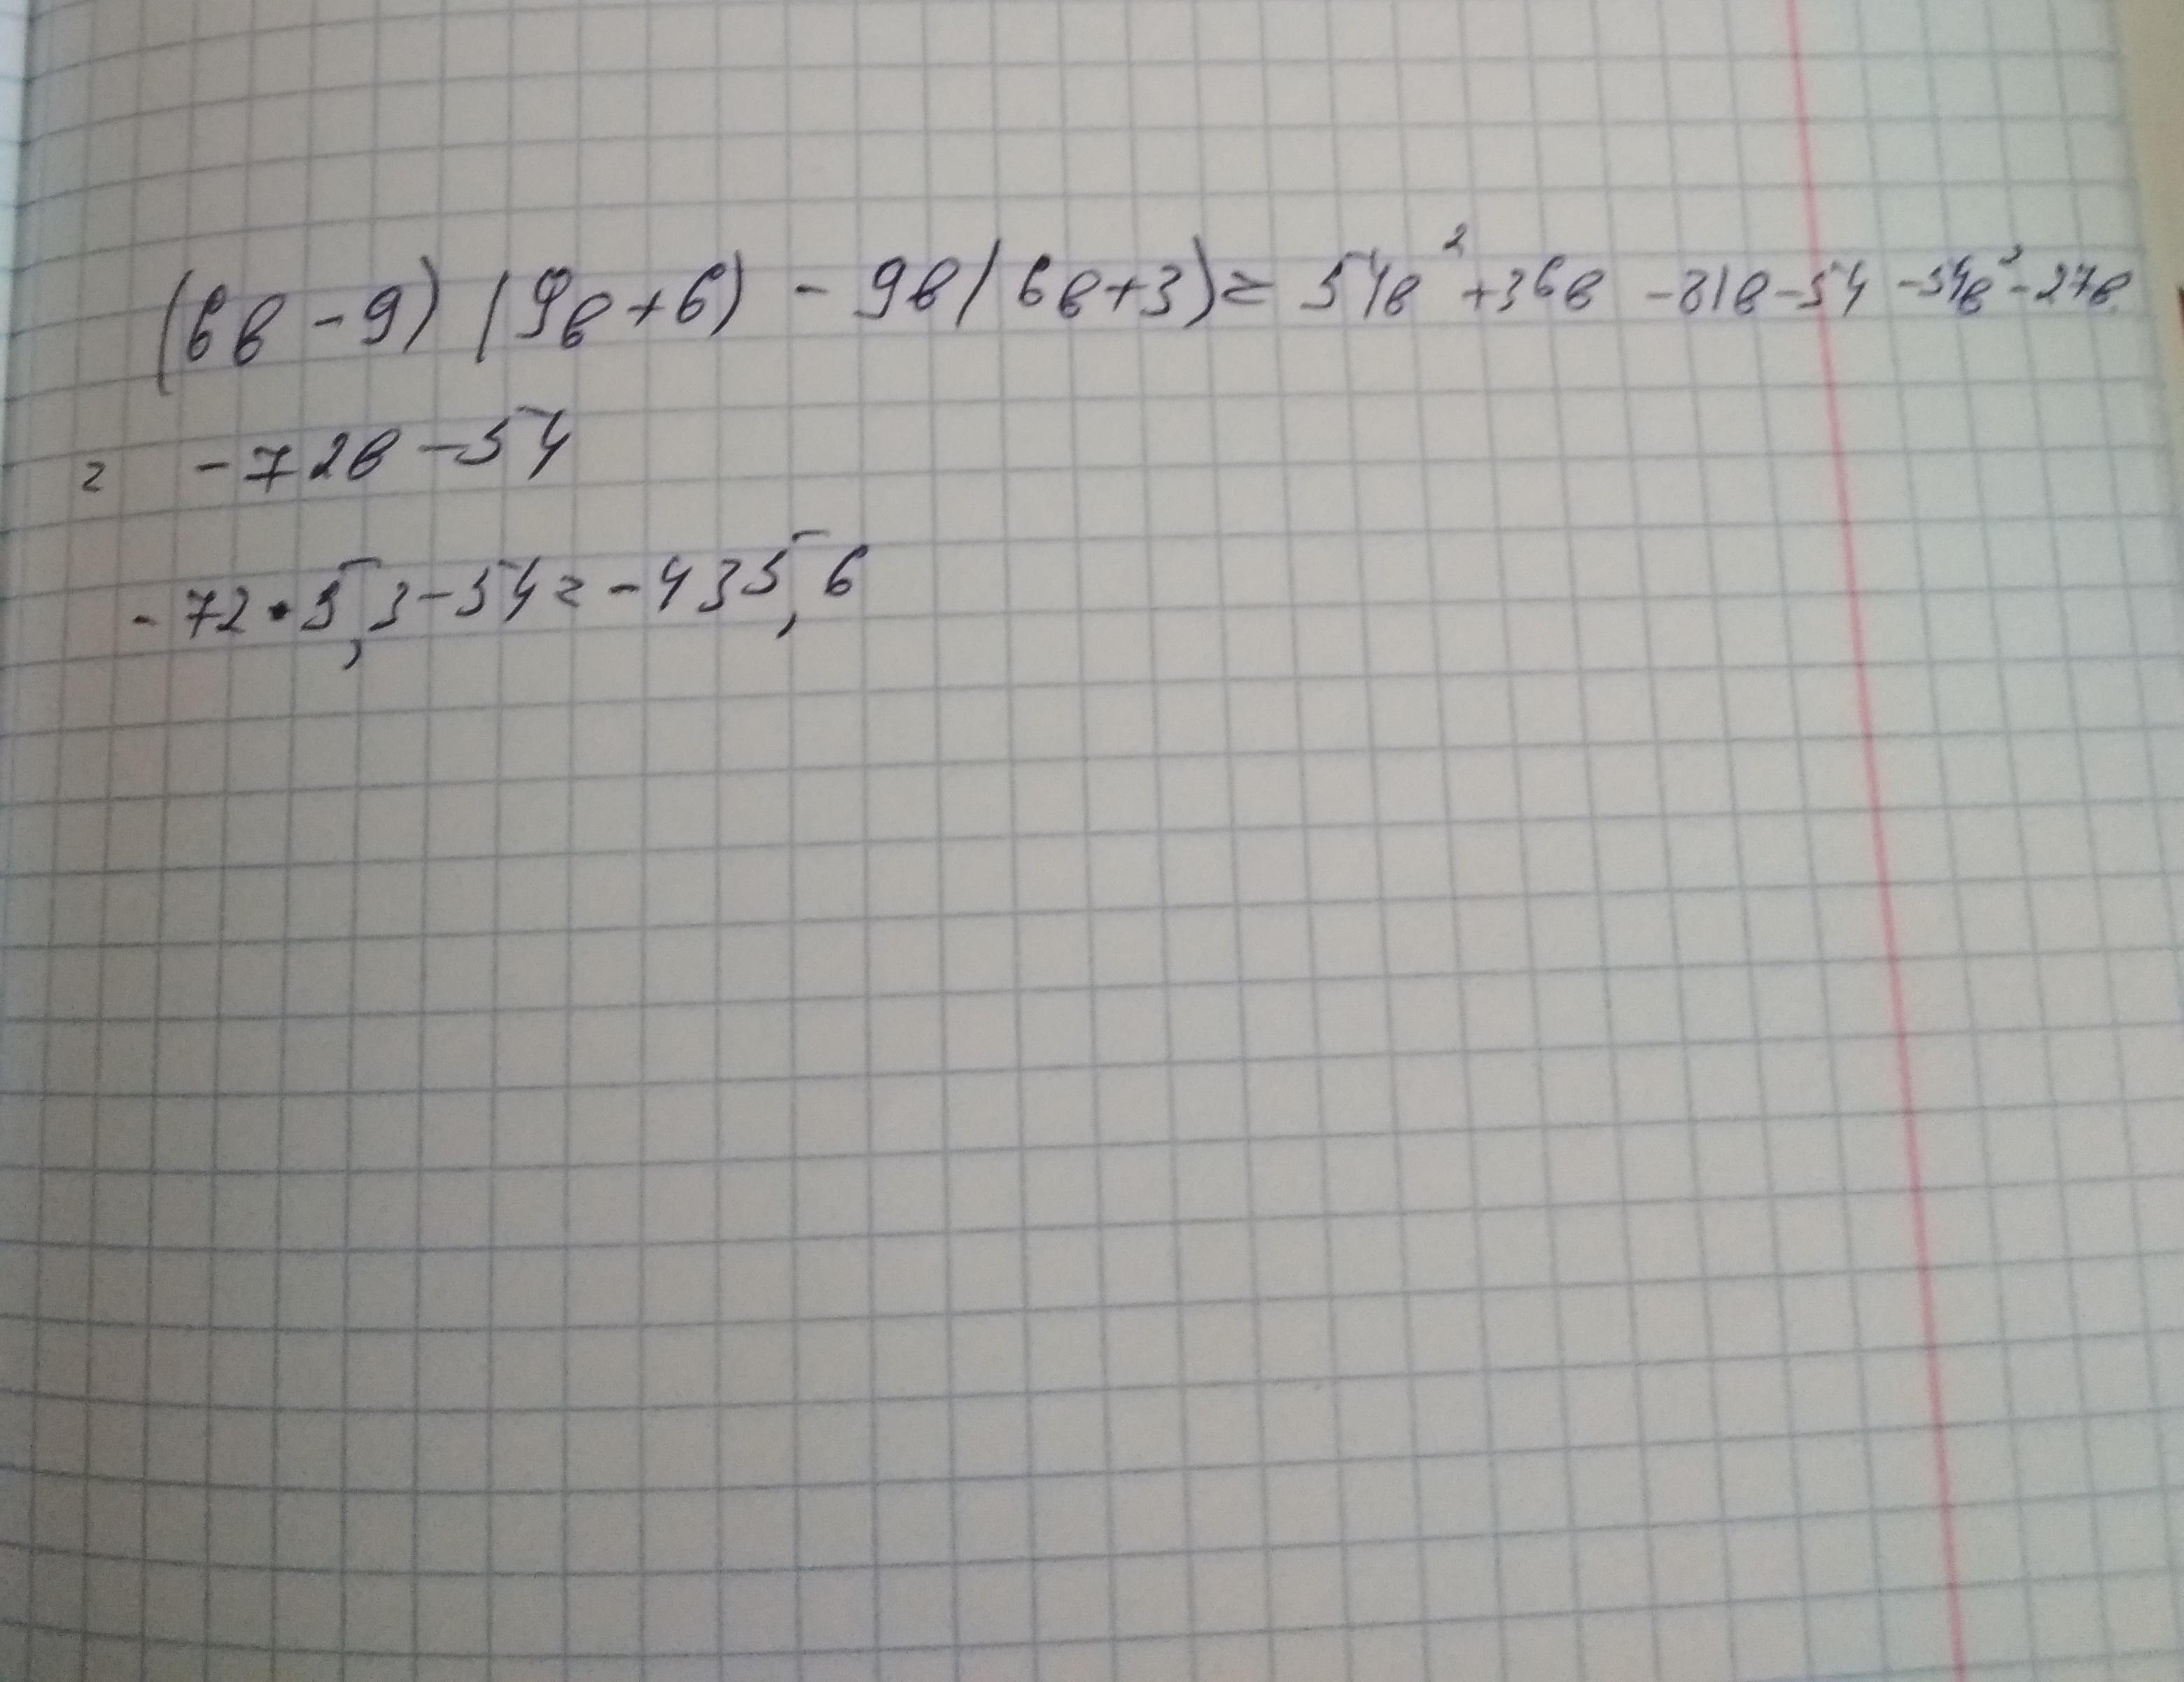 (6в - 9) (9в + 6) - 9в(6в+3) = 54в² +36в -81в-54 -54в²-27в
= -72в-54
-72•5,3-54=-435,6